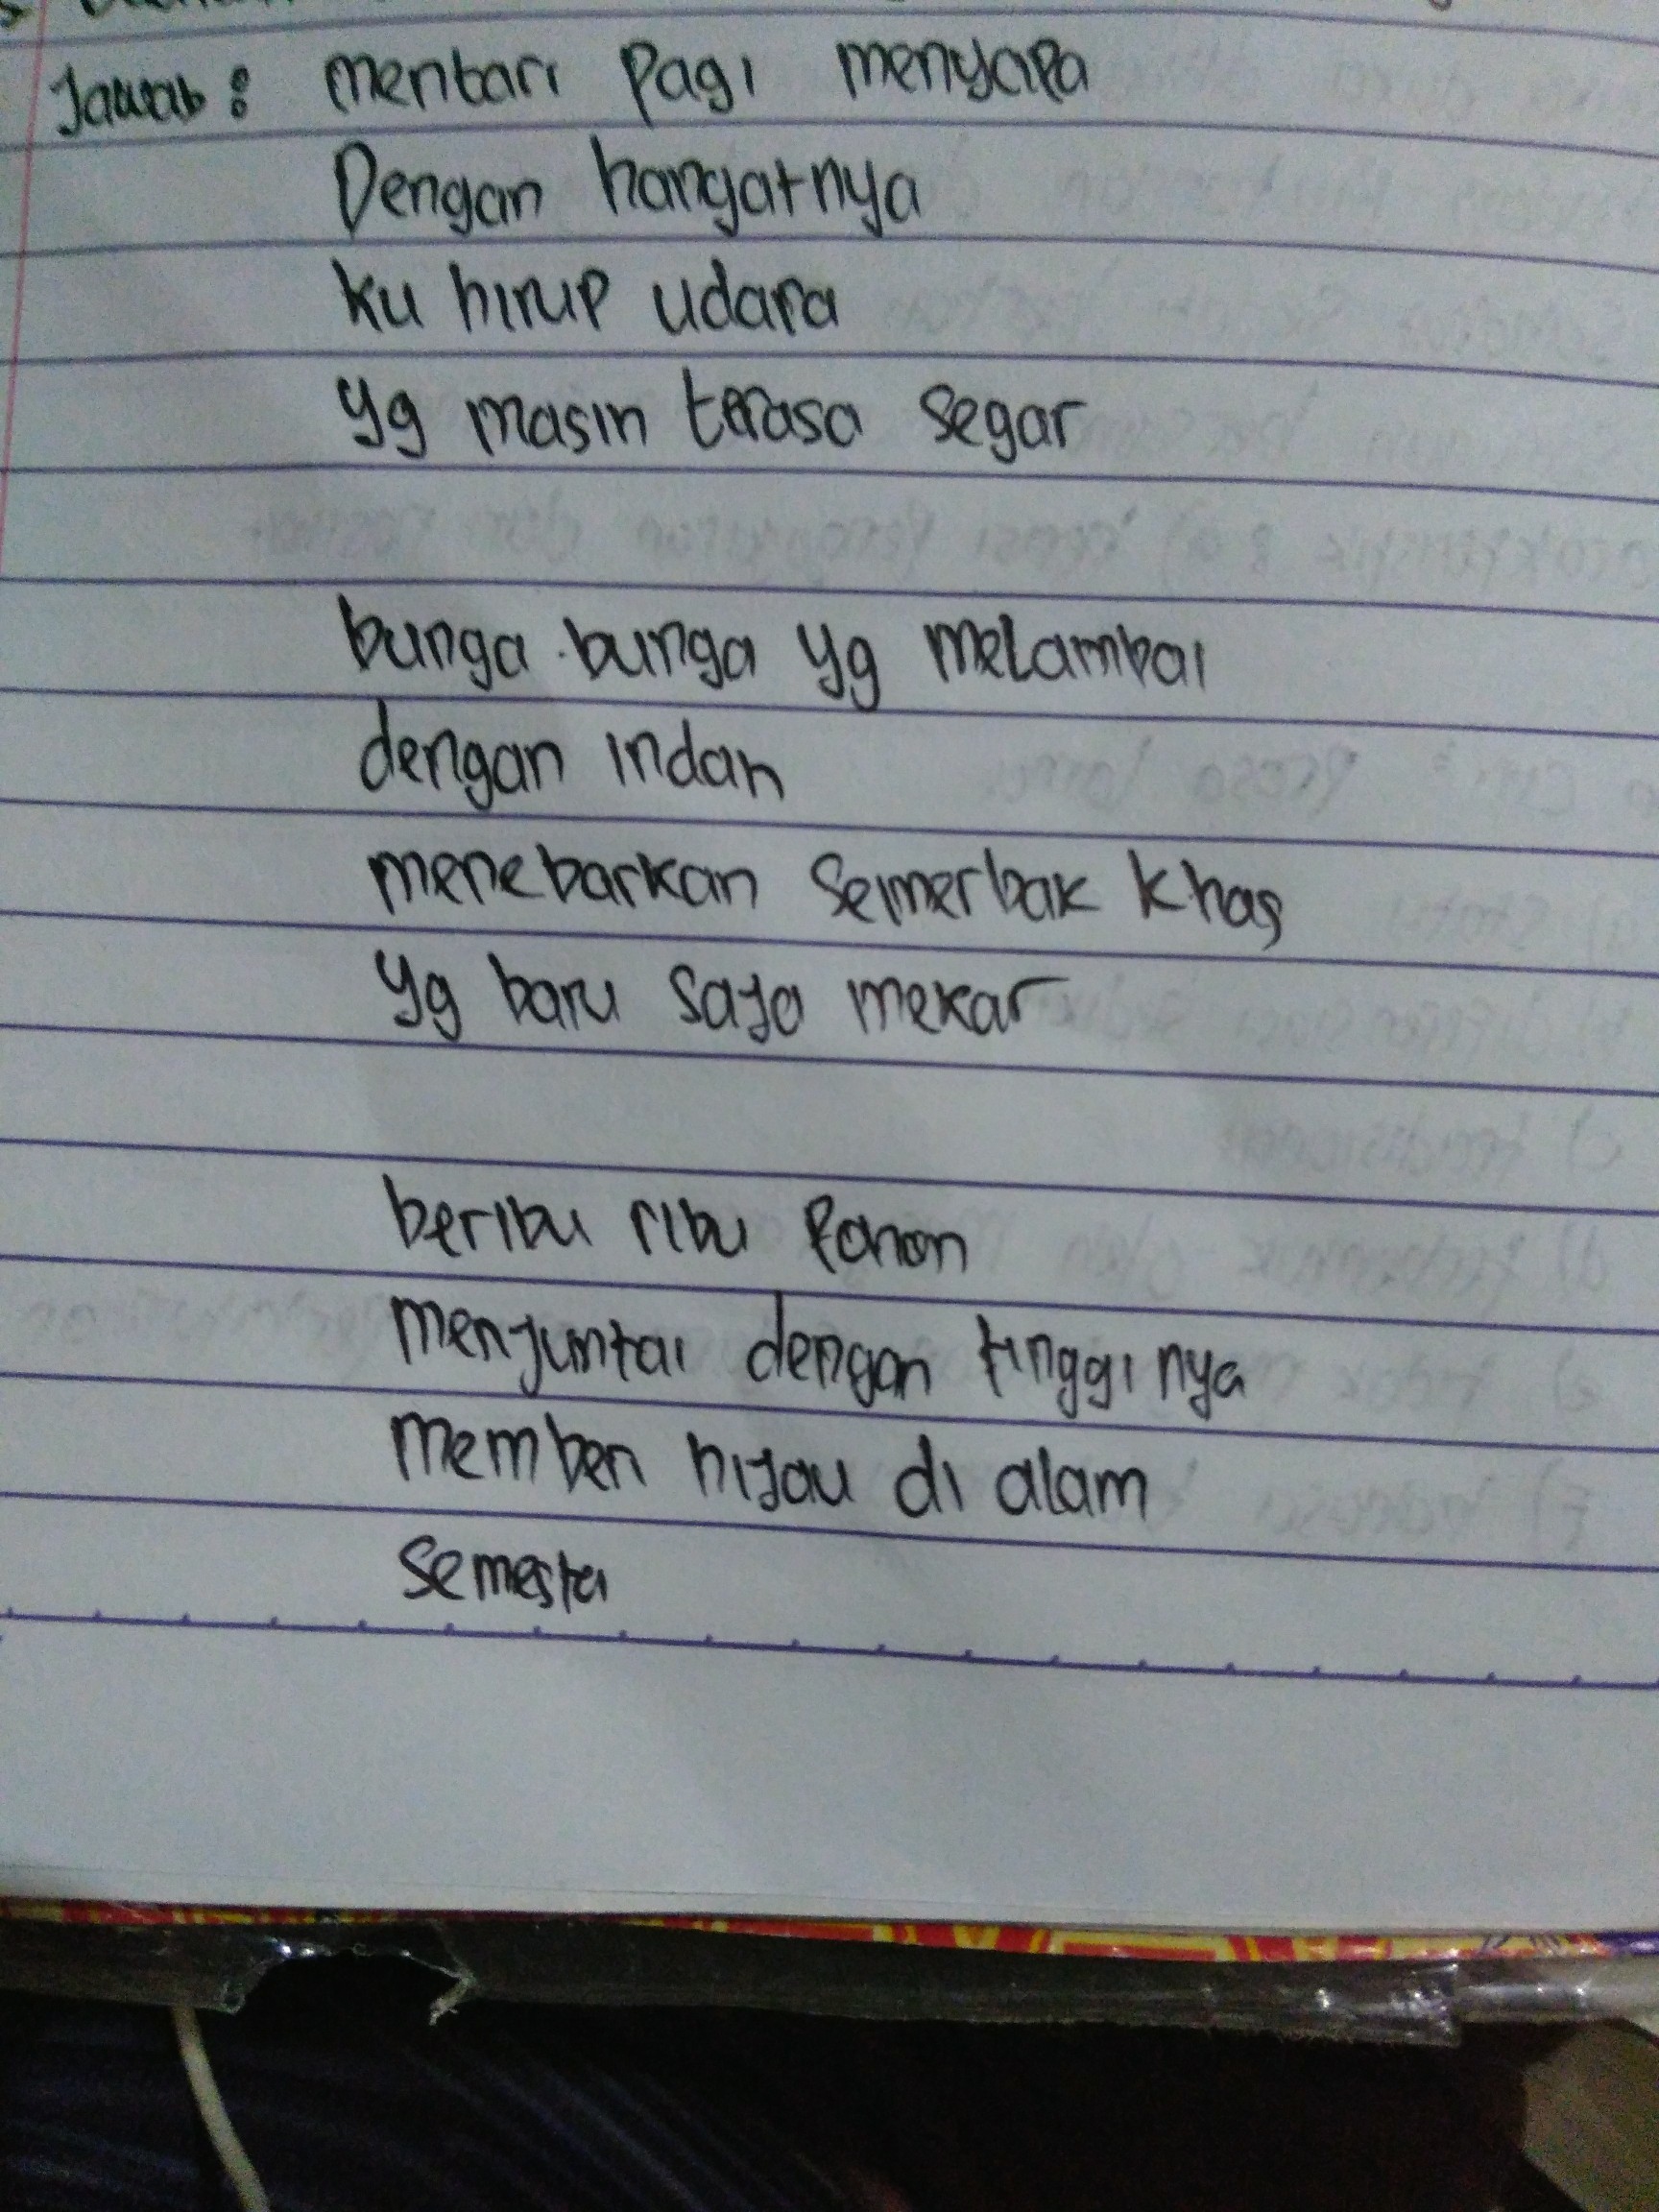 Jawab : mentari pagi menyapa
Dengan hangatnya
ku hirup udara
yg masih terasa segar
bunga-bunga yg melambai
dengan indah
menebarkan semerbak khas
yg baru saja mekar
beribu ribu pohon
menjuntai dengan tingginya
memberi hijau di alam
semesta